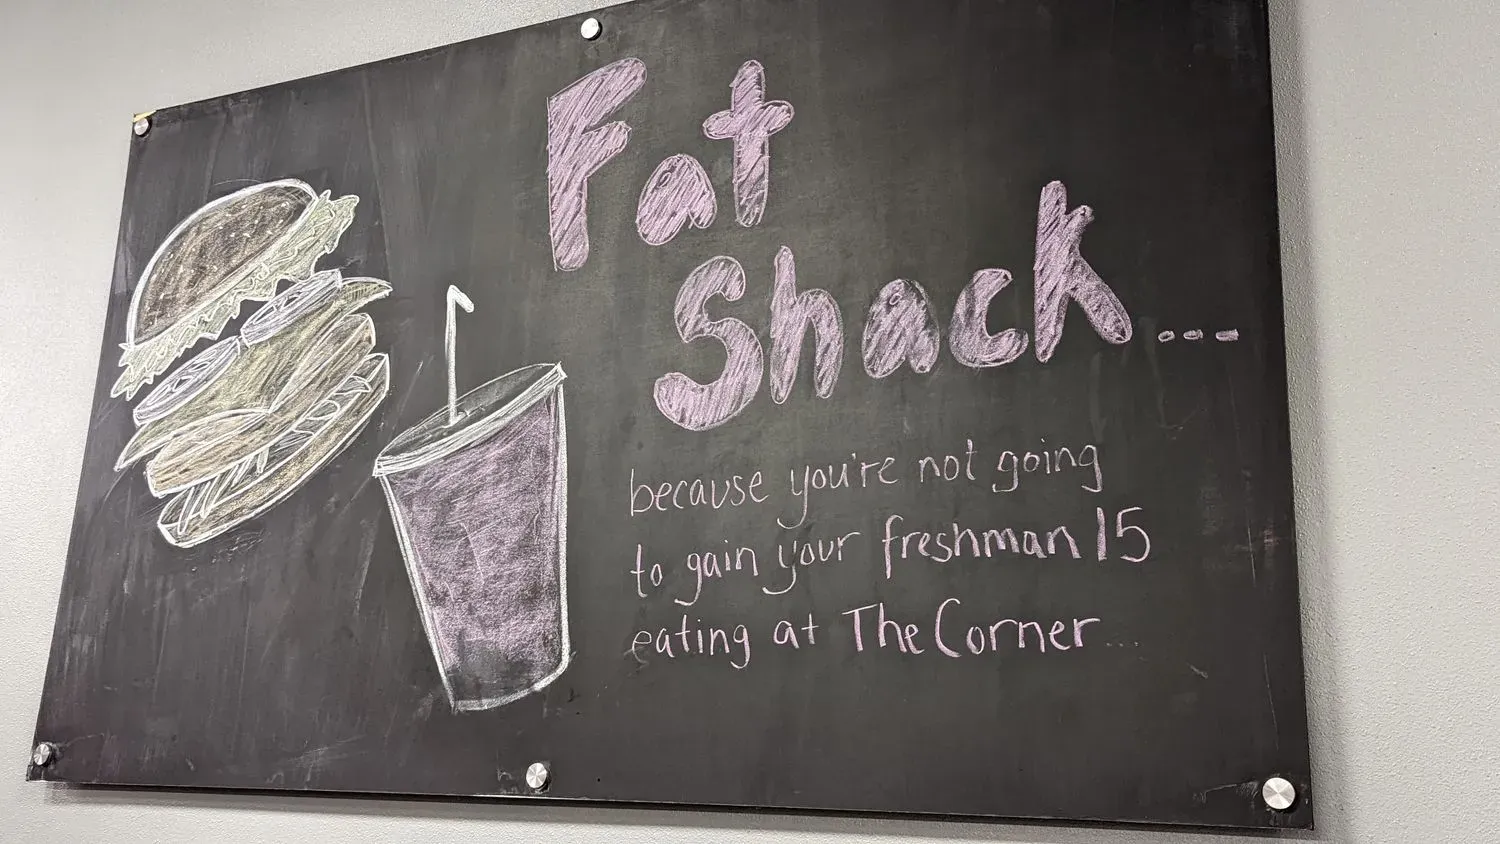 Fat
Shack...
because you're not going
to gain your freshman 15
eating at The Corner...